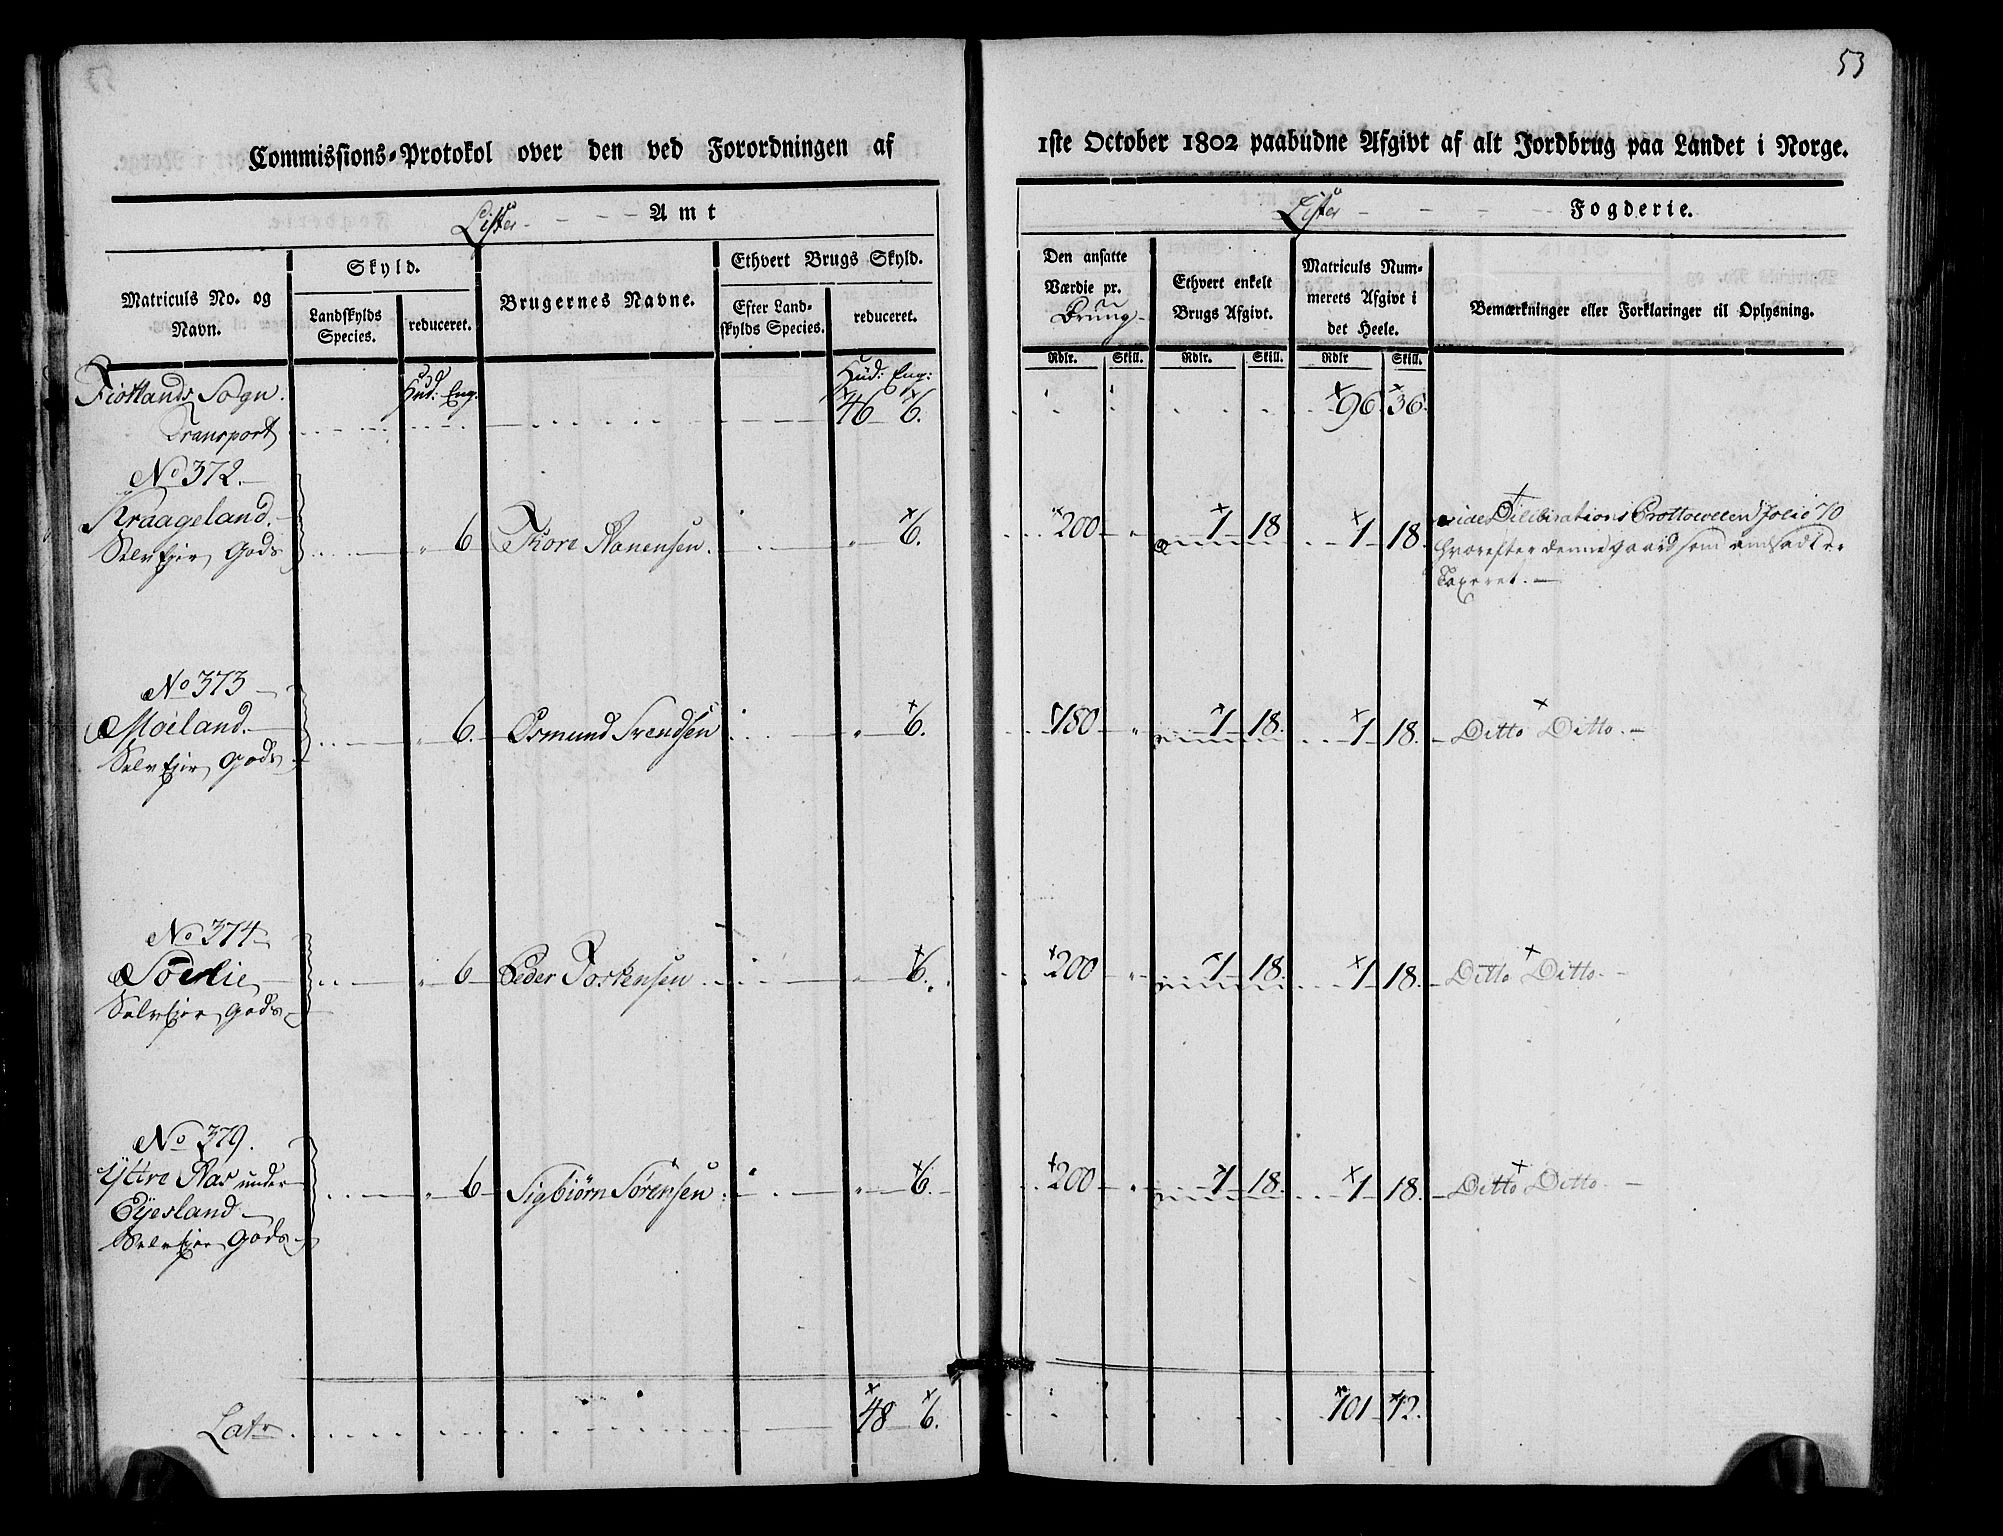 53
Commissions-Protokol over den ved Forordningen af 1ste October 1802 paabudne Afgivt af alt Jordbrug paa Landet i Norge.
Lister Amt
Lister Fogderie.
Matriculs No. og Navn.
Skyld.
Landskylds Species.
reduceret.
Brugernes Navne.
Ethvert Brugs Skyld.
Efter Landskylds Species.
reduceret.
Den ansatte Værdie pr. Brug
Ethvert enkelt Brugs Afgivt.
Matriculs Nummerets Afgivt i det Heele.
Bemærkninger eller Forklaringer til Oplysning.
Rdlr. Skill. Rdlr. Skill. Rdlr Skill.
Fiotlands Sogn. Hud: Eng: Hud: Eng:
Transport 46 6. 96 36.
No 372.
Kraageland.
Selv Ejer Gods " 6 Tore Aanensen. " 6. 200 " 1 18 1 18.
vide Deliberations Prottocollen folio 70
hvorefter denne gaard som andsadt er
Taxeret.
No 373
Moeland.
Selv Ejer Gods " 6. Osmund Svendsen " 6. 150 " 1 18. 1 18. Ditto Ditto.
No 374
Soelie
Selv Ejer Gods " 6 Peder Torkensen " 6. 200 " 1 18. 1 18. Ditto Ditto.
No 379.
Yttre Aas under
Eyesland
Selv Ejer Gods " 6 Sigbiørn Sørensen " 6. 200 " 1 18. 1 18. Ditto Ditto.
Latr 48 6. 101 12.